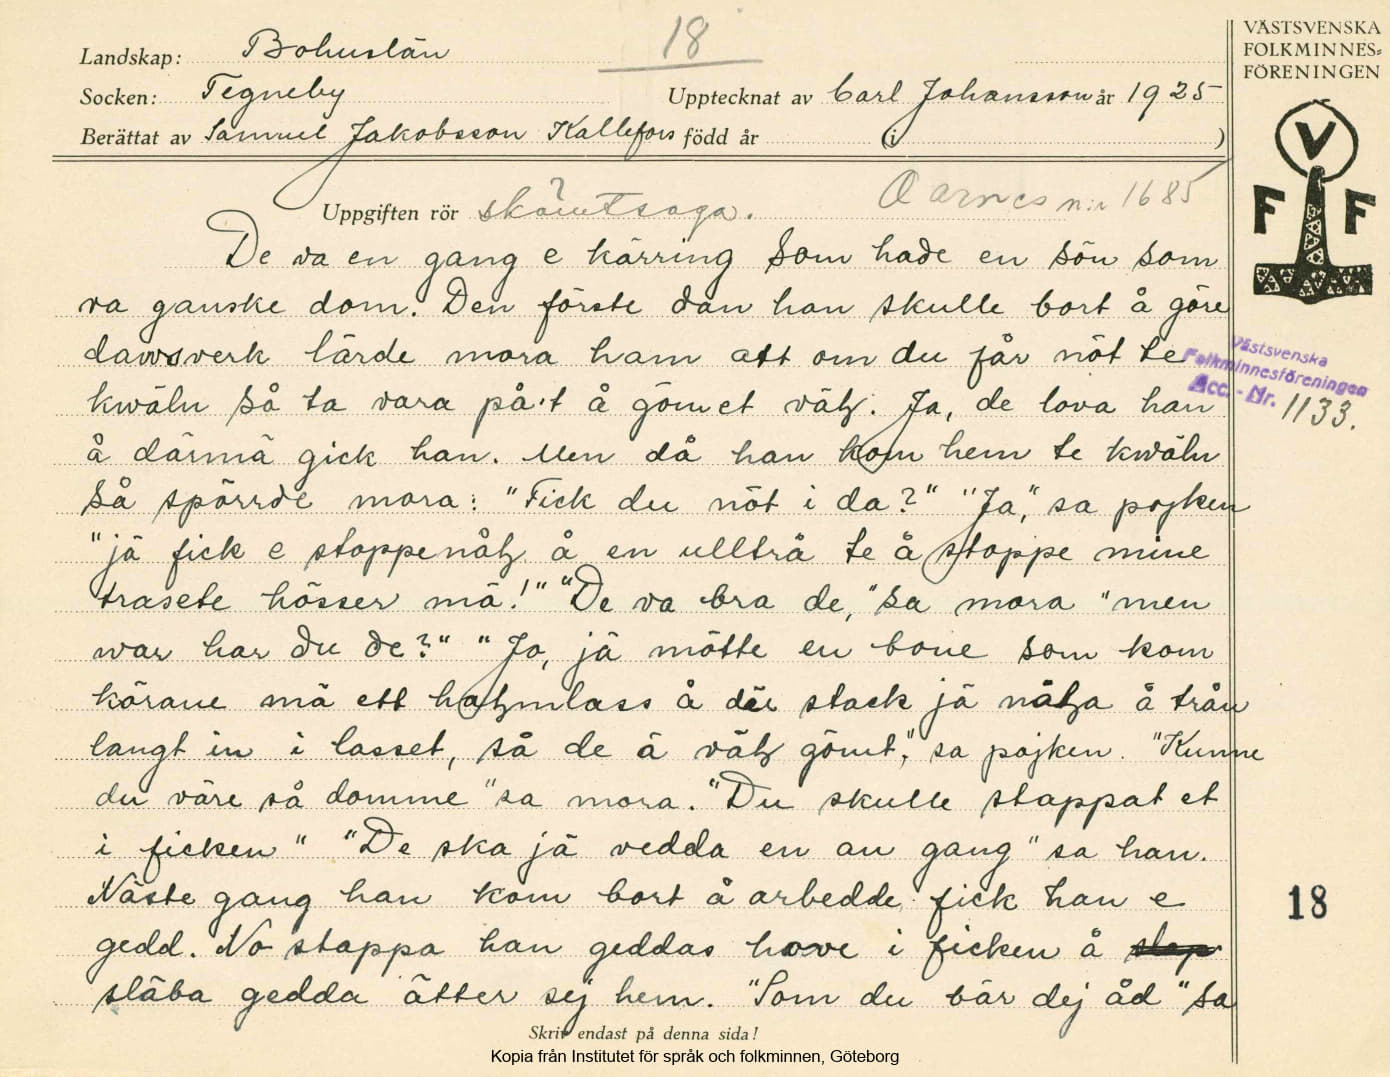 18
VÄSTSVENSKA
FOLKMINNES=
FÖRENINGEN
Landskap: Bohuslän
Socken: Tegneby
Upptecknat av Carl Johansson år 1925
Berättat av Samuel Jakobsson Kallefors född år (i )
Uppgiften rör skämtsaga. Aarnes n:r 1685
V
F F
De va en gang e kärring som hade en sön som
va ganske dom. Den förste dan han skulle bort å göre
dawsverk lärde mora ham att om du får nöt te
kwäln så ta vara på't å göm et väl. Ja, de lova han
å därmä gick han. Men då han kom hem te kwäln
så spörrde mora: "Fick du nöt i da?" "Ja," sa pojken
"jä fick e stoppenål å en ulltrå te å stoppe mine
trasete hösser mä!" "De va bra de," sa mora "men
war har du de?" "Jo, jä mötte en bone som kom
körane mä ett halmlass å där stack jä nåla å trån
langt in i lasset, så de ä väl gömt," sa pojken. "Kunne
du väre så domme" sa mora. "Du skulle stappat et
i ficken" "De ska jä vedda en an gang" sa han.
Näste gang han kom bort å arbedde fick han e
gedd. No stappa han geddas hove i ficken å
släba gedda ätter sej hem. "Som du bär dej åd" sa
Västsvenska
Folkminnesföreningen
Acc.-Nr. 1133.
18
Skriv endast på denna sida!
Kopia från Institutet för språk och folkminnen, Göteborg